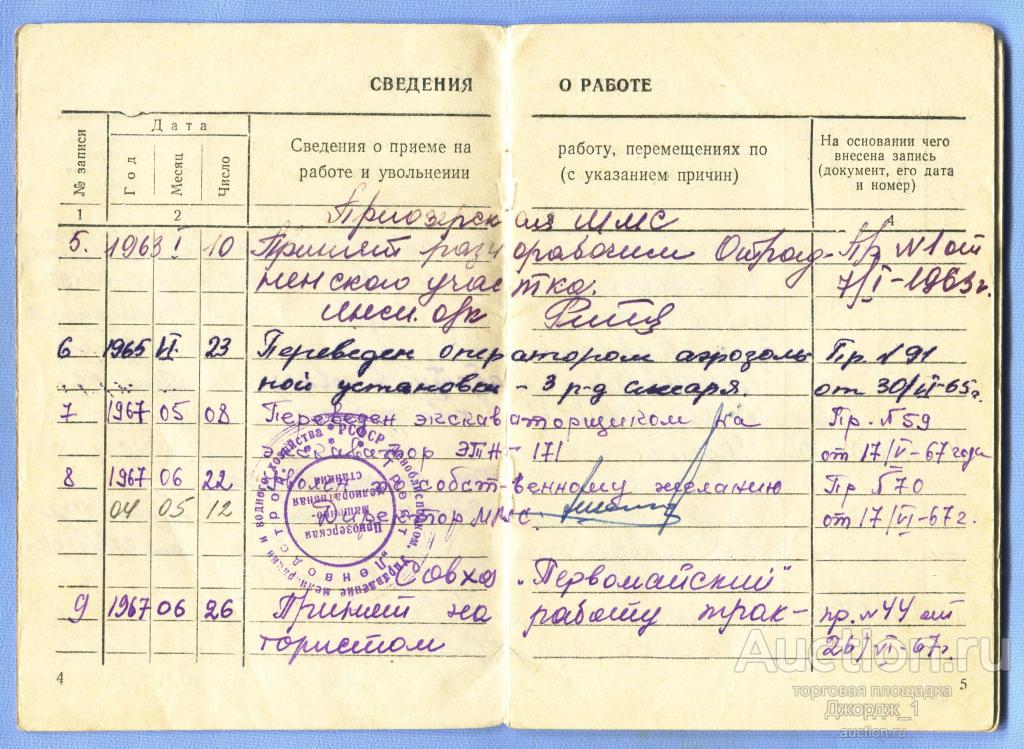 СВЕДЕНИЯ О РАБОТЕ
№ записи
Дата
Год
Месяц
Число
Сведения о приеме на работу, перемещениях по
работе и увольнении (с указанием причин)
На основании чего
внесена запись
(документ, его дата
и номер)
1 2 4
Приозерская ММС
5. 1963 I 10 Принят разнорабочим Отрад- Пр N1 от
ненского участка. 7/I-1963г.
6 1965 VI 23 Переведен оператором аэрозоль Пр. N91
ной установки - 3 р-д слесаря. от 30/VI-65г.
7 1967 05 08 Переведен экскаваторщиком на Пр. N59
экскаватор ЭТН-171 от 17/V-67 года
8 1967 06 22 Уволен по собственному желанию Пр N70
04 05 12 Директор ММС. от 17/VI-67г.
РСФСР
Приозерская
машинно-
мелиоративная
станция
"Первомайский"
9 1967 06 26 Принят на работу трак- пр. N44 от
тористом 26/VI-67г.
4 5
Auction.ru
торговая площадка
Джордж_1
auction.ru